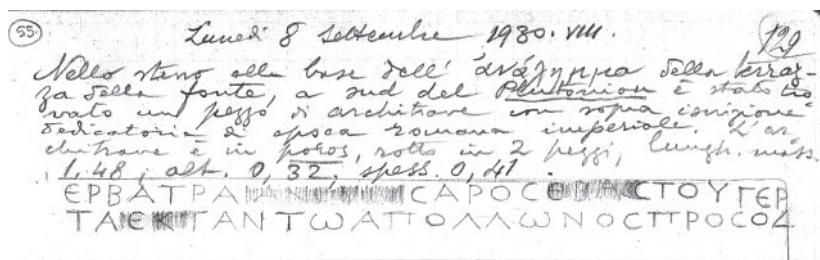 55.
Lunedì 8 Settembre 1930. VIII.
129
Nello sterro alla base dell' ἀνάλημμα della terraz-
za della fonte, a sud del Plutonion è stato tro
vato un pezzo di architrave con sopra iscrizione
dedicatoria di epoca romana imperiale. L'ar
chitrave è in poros, rotto in 2 pezzi, lungh. mass.
1.48; alt. 0,32. spess. 0,41.
ΕΡΒΑΤΡΑ CΑΡΟC CΤΟΥΓΕΡ
ΤΑΕΚΤΑΝΤⲰΑΠΟΛΛⲰΝΟCΠΡΟCΟΔ